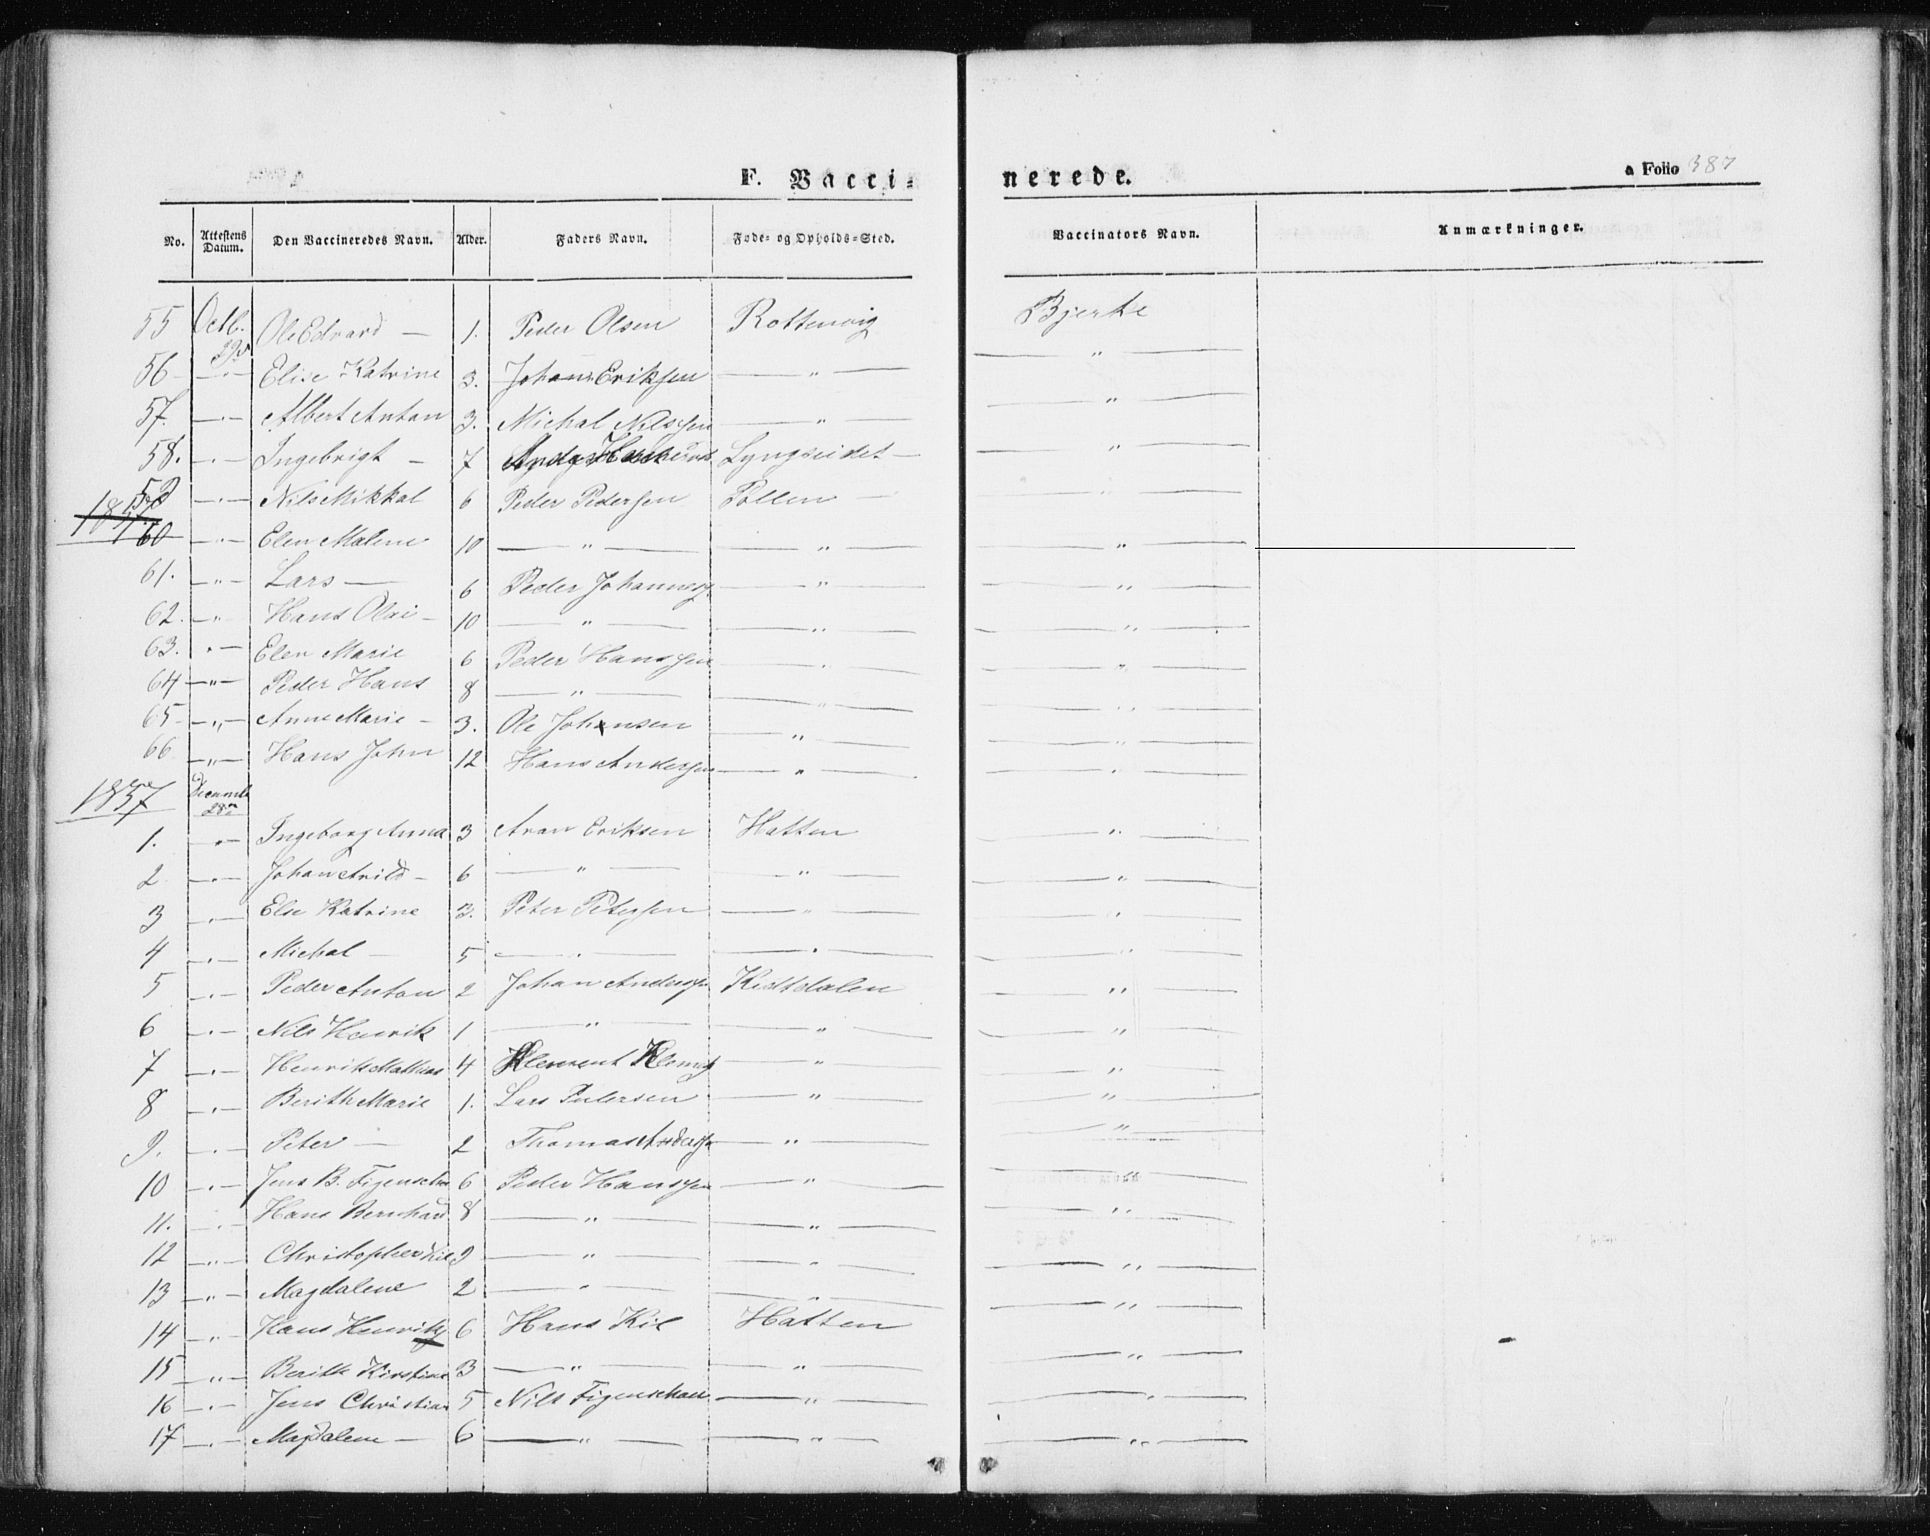 F. Vacci-
nerede.
a Folio 387
No. Attestens Datum. Den Vaccineredes Navn. Alder. Faders Navn. Føde- og Opholds-Sted. Vaccinators Navn. Anmærkninger.
55 Octb. 29de Ole Edvard — 1. Peder Olsen Rottenvig Bjerke
56 —"— Elise Katrine 3. Johans Eriksen —"— —"—
57. —"— Albert Anton 3. Michal Nilssen —"— —"—
58. —"— Ingebrigt — 7 Lyngseidet — —"—
59 —"— Nils Mikkal 6 Peder Pedersen Pollen — —"—
1857
60 —"— Elen Malene 10 —"— —"— —"—
61. —"— Lars — 6 Peder Johannes —"— —"—
62. —"— Hans Olai — 10 —"— —"— —"—
63. —"— Elen Marie 6 Peder Hanssen —"— —"—
64 —"— Peder Hans 8 —"— —"— —"—
65 —"— Anne Marie — 3. Ole Johansen —"— —"—
66 —"— Hans John 12 Hans Andersen —"— —"—
1857 Decemb 28de
1. —"— Ingeborg Anna 3 Aron Eriksen Hatten —"—
2 —"— Johan Arild — 6 —"— —"— —"—
3 —"— Else Katrine 3. Peter Petersen —"— —"—
4 —"— Michal — 5 —"— —"— —"—
5 —"— Peder Anton 2 Johan Anderssen Kidtdalen —"—
6 —"— Nils Henrik 1 —"— —"— —"—
7 —"— Henrik Mathias 4 Klement —"— —"—
8 —"— Berith Marie 1. Lars Pedersen —"— —"—
9. —"— Peter — 2 Thomas Anders —"— —"—
10 —"— Jens B. Figenschou 6 Peder Hanssen —"— —"—
11. —"— Hans Bernhard 8 —"— —"— —"—
12 —"— Christopher Kil 9 —"— —"— —"—
13 —"— Magdalene 2 —"— —"— —"—
14 —"— Hans Henrik 6 Hans Kil Hatten —"—
15 —"— Berith Kirstine 3 —"— —"— —"—
16 —"— Jens Christian 5 Nils Figenschau —"— —"—
17 —"— Magdalene — 6 —"— —"— —"—